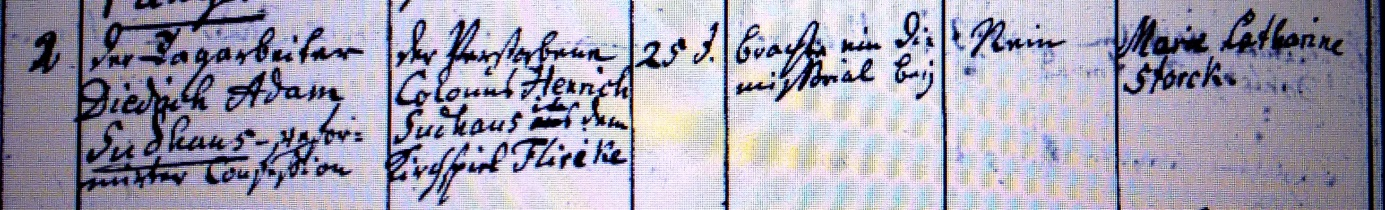 2
der Tagarbeiter
Diedrich Adam
Sudhaus - refor-
mirter Confession
der Verstorbene
Colonus Henrich
Sudhaus aus dem
Kirchspiel Flirike
25 J.
brachte ein Di
missorial bey
Nein
Marie Catharine
Storck.